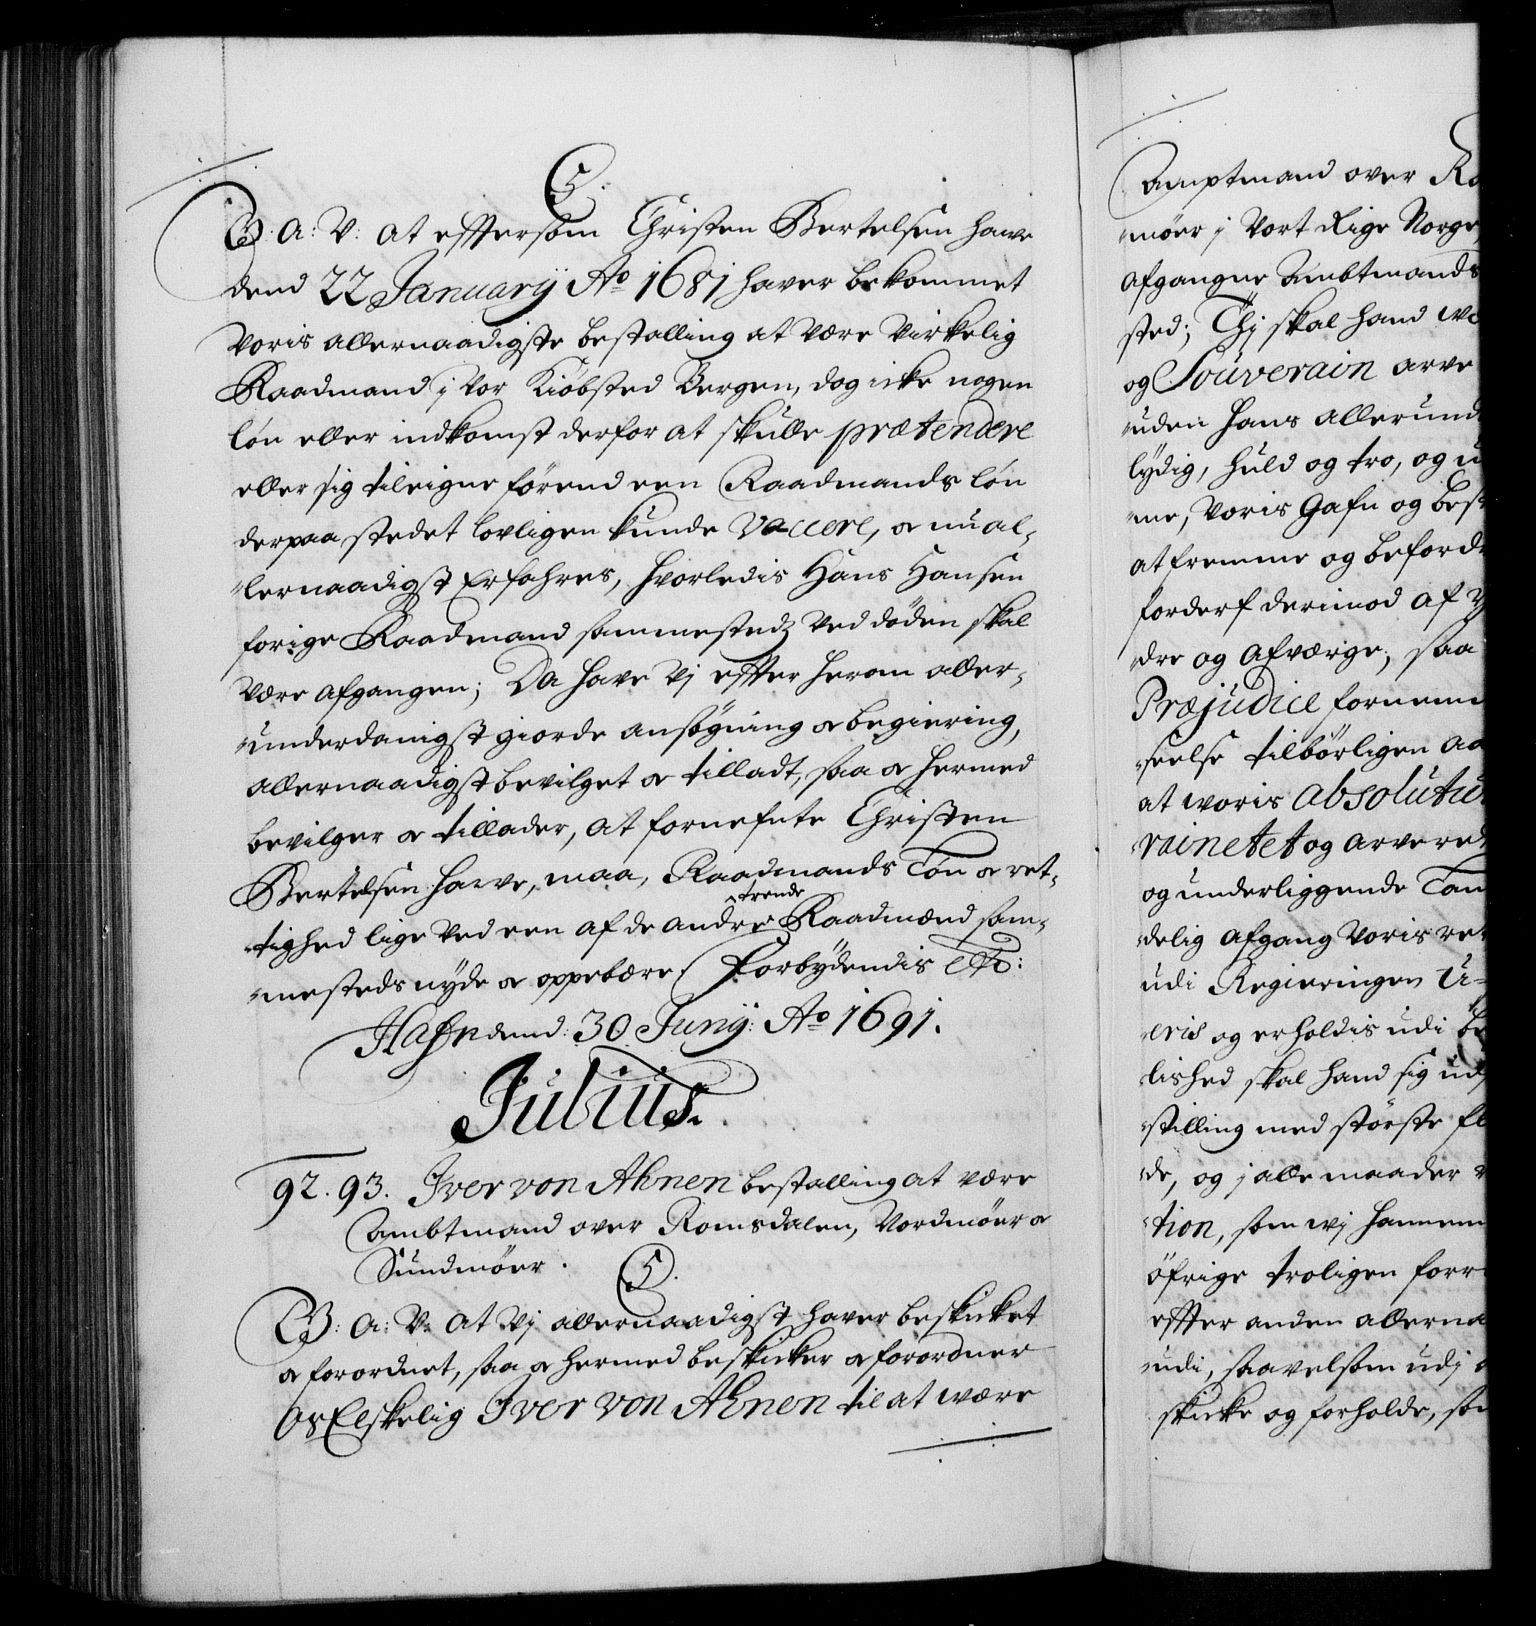 C5.
G: A: V: At efftersom Christen Bertelsen hawe
dend 22 January Ao 1681 haver bekommet
Voris allernaadigste bestalling at være Virkelig
Raadmand j Vor Kiøbsted Bergen, dog icke nogen
løn eller indkomst derfor at skulle prætendere
eller sig tileigne førend een Raadmands løn
derpaa stedet lovligen kunde vacere, og nu al-
lernaadigst Erfahres, hvorledis Hans Hansen
forige Raadmand sammestedz Ved døden skal
være afgangen; Da have Vj effter herom aller-
underdanigst giorde ansøgning og begiering,
allernaadigst bevilget og tilladt, saa og hermed
bevilger og tillader, at fornefnte Christen
Bertelsen hawe, maa, Raadmands Løn og ret-
tighed lige Ved een af de andre trende Raadmænd sam-
mesteds nyde og oppebære. Forbydendis etc:
Hafn dend: 30 Junij: Ao 1691.
Julius.
92. 93. Iver von Ahnen bestalling at være
Ambtmand over Romsdalen, Nordmøer og
Sundmøer.
C5.
G: A: V: At Vj allernaadigst haver beskicket
og forordnet, saa og hermed beskicker og forordner
Os Elskelig Iver von Ahnen til at wære
Amptmand over
møer j Vort Rige Norge,
afgangne Ambtmands
sted; Thj skal hand
og Souverain arve
uden Hans allerund
lydig, huld og tro, og
me, Voris Gafn og best
at fremme og befordr
forderf derimod af
dre og afværge, saa
Præjudice fornemm
seelse tilbørligen
at woris absolutu
rainetet og arvered
og underliggende Lan
delig afgang Voris ret
udi Regieringen u-
eris og erholdis udi
lished skal hand sig
stilling med største fl
de, og j alle maader
tion, som wj hannem
øfrige troligen forr
effter anden allerna
udi, saavelsom udj
skicke og forholde, som